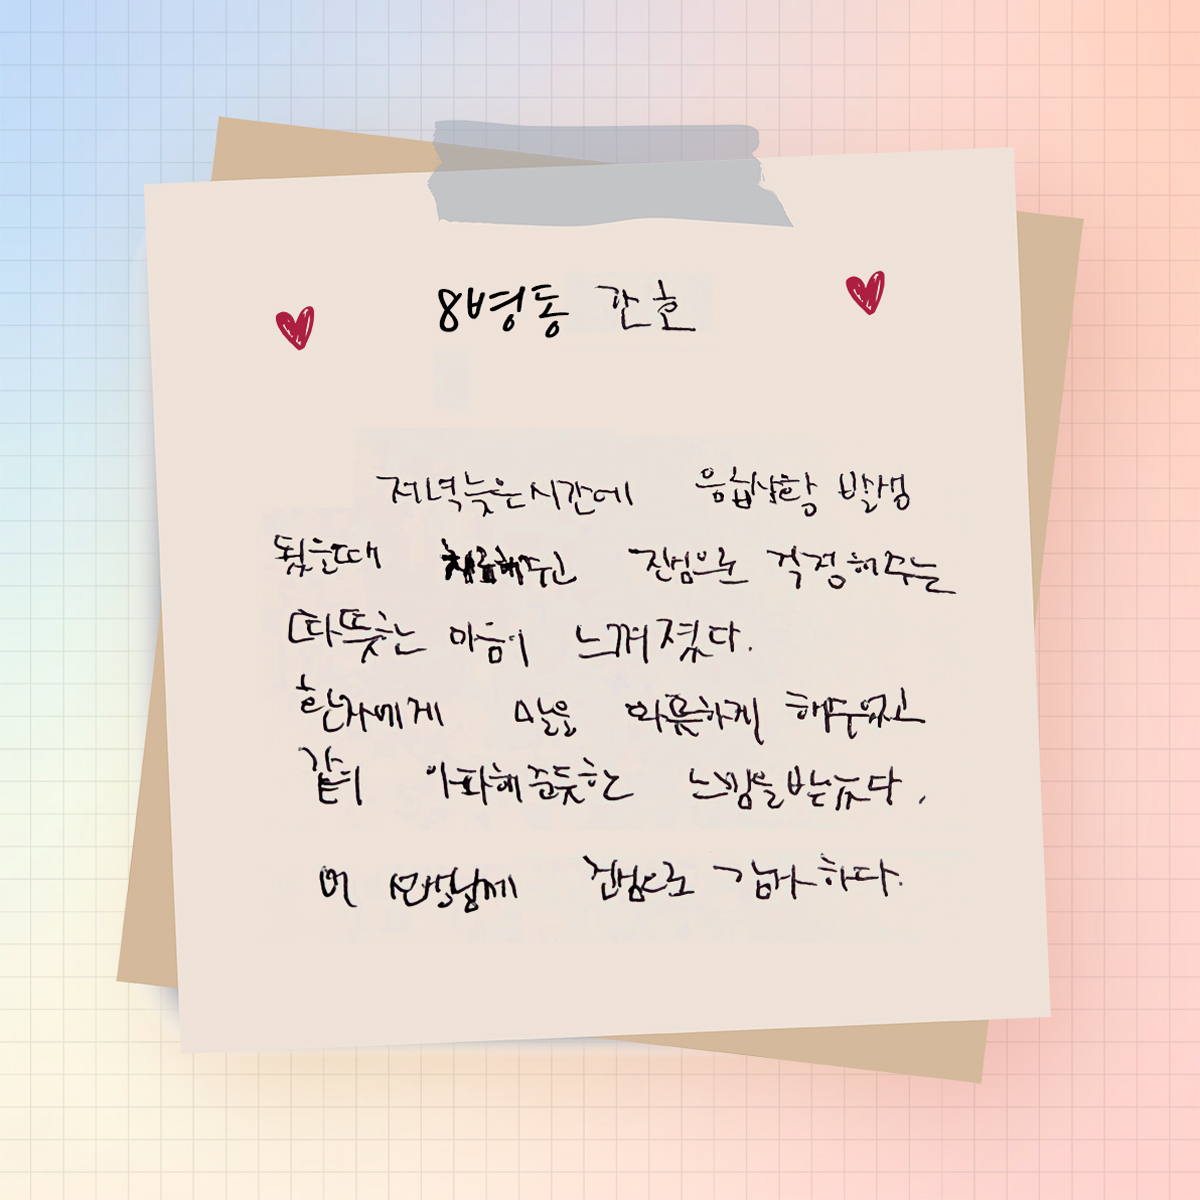 8병동 간호
저녁늦은시간에 응협상황 발생
됬을때 치료해주고 진심으로 걱정해주는
따뜻한 마음이 느껴졌다.
환자에게 말을 따뜻하게 해주었고
같이 아파해준듯한 느낌을받는다.
선생님께 진심으로 감사하다.